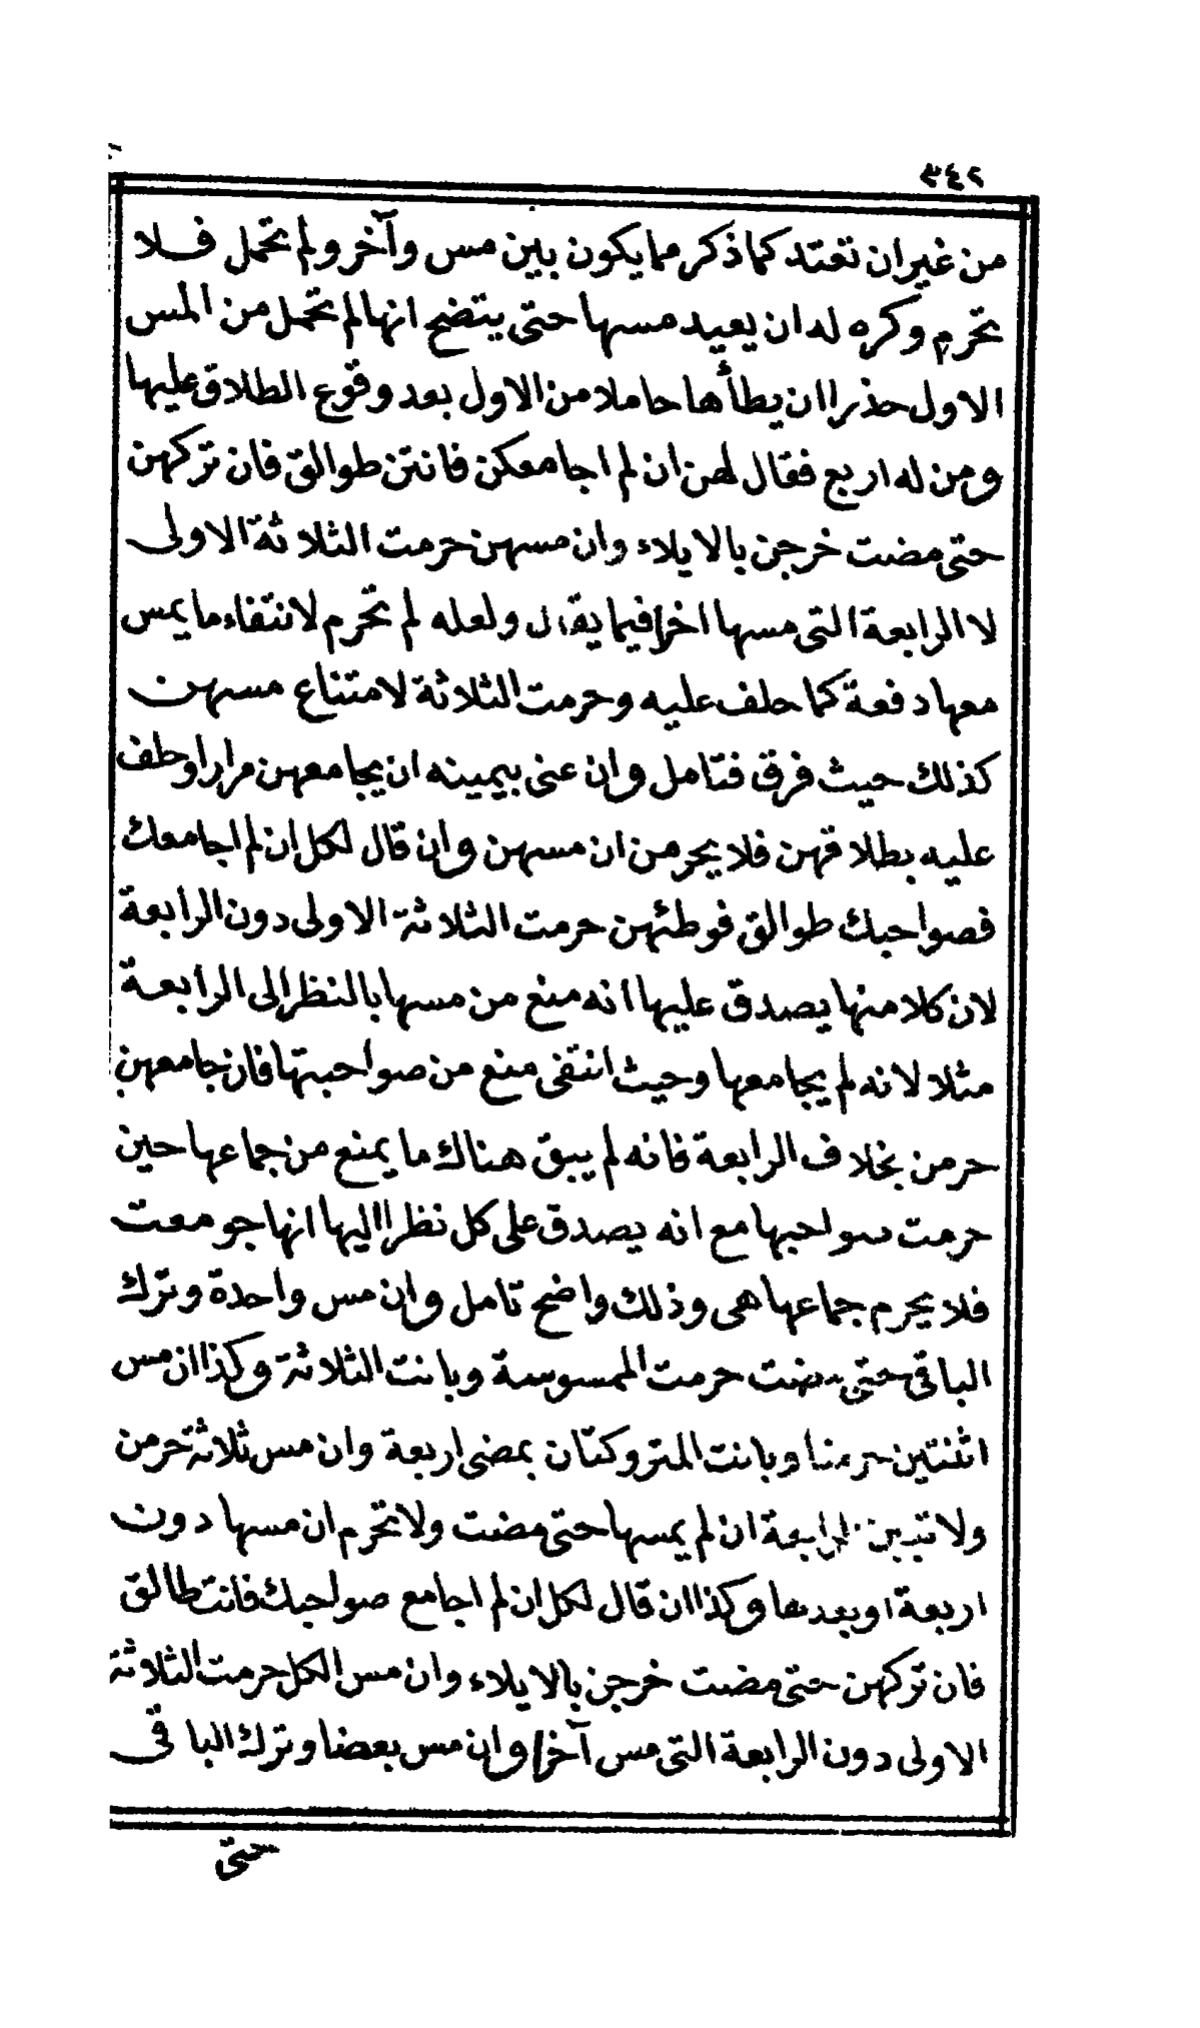 ٣٤٢
من غير ان تعتد كما ذكر مما يكون بين مس وآخر ولم تحمل فلا
تحرم وكره له ان يعيد مسها حتى يتضح انها لم تحمل من المس
الاول حذرا ان يطأها حاملا من الاول بعد وقوع الطلاق عليها
ومن له اربع فقال لهن ان لم اجامعكن فانتن طوالق فان تركهن
حتى مضت خرجن بالايلاء وان مسهن حرمت الثلاثة الاولى
لا الرابعة التى مسها اخرا فيما يقال ولعله لم تحرم لانتفاء ما يمس
معها دفعة كما حلف عليه وحرمت الثلاثة لامتناع مسهن
كذلك حيث فرق فتامل وان عنى بيمينه ان يجامعهن مرارا وحلف
عليه بطلاقهن فلا يحرمن ان مسهن وان قال لكل ان لم اجامعك
فصواحبك طوالق فوطئهن حرمت الثلاثة الاولى دون الرابعة
لان كلا منها يصدق عليها انه منع من مسها بالنظر الى الرابعة
مثلا لانه لم يجامعها وحيث انتفى منع من صواحبتها فان جامعهن
حرمن بخلاف الرابعة فانه لم يبق هناك ما يمنع من جماعها حين
حرمت صواحبها مع انه يصدق على كل نظرا اليها انها جومعت
فلا يحرم جماعها هى وذلك واضح تامل وان مس واحدة وترك
الباقى حتى مضت حرمت الممسوسة وبانت الثلاثة وكذا ان مس
اثنتين حرمتا وبانت المتروكتان بمضى اربعة وان مس ثلاثة حرمن
ولا تبين الرابعة ان لم يمسها حتى مضت ولا تحرم ان مسها دون
اربعة او بعدها وكذا ان قال لكل ان لم اجامع صواحبك فانت طالق
فان تركهن حتى مضت خرجن بالايلاء وان مس الكل حرمت الثلاثة
الاولى دون الرابعة التى مس آخرا وان مس بعضا وترك الباقى
حتى